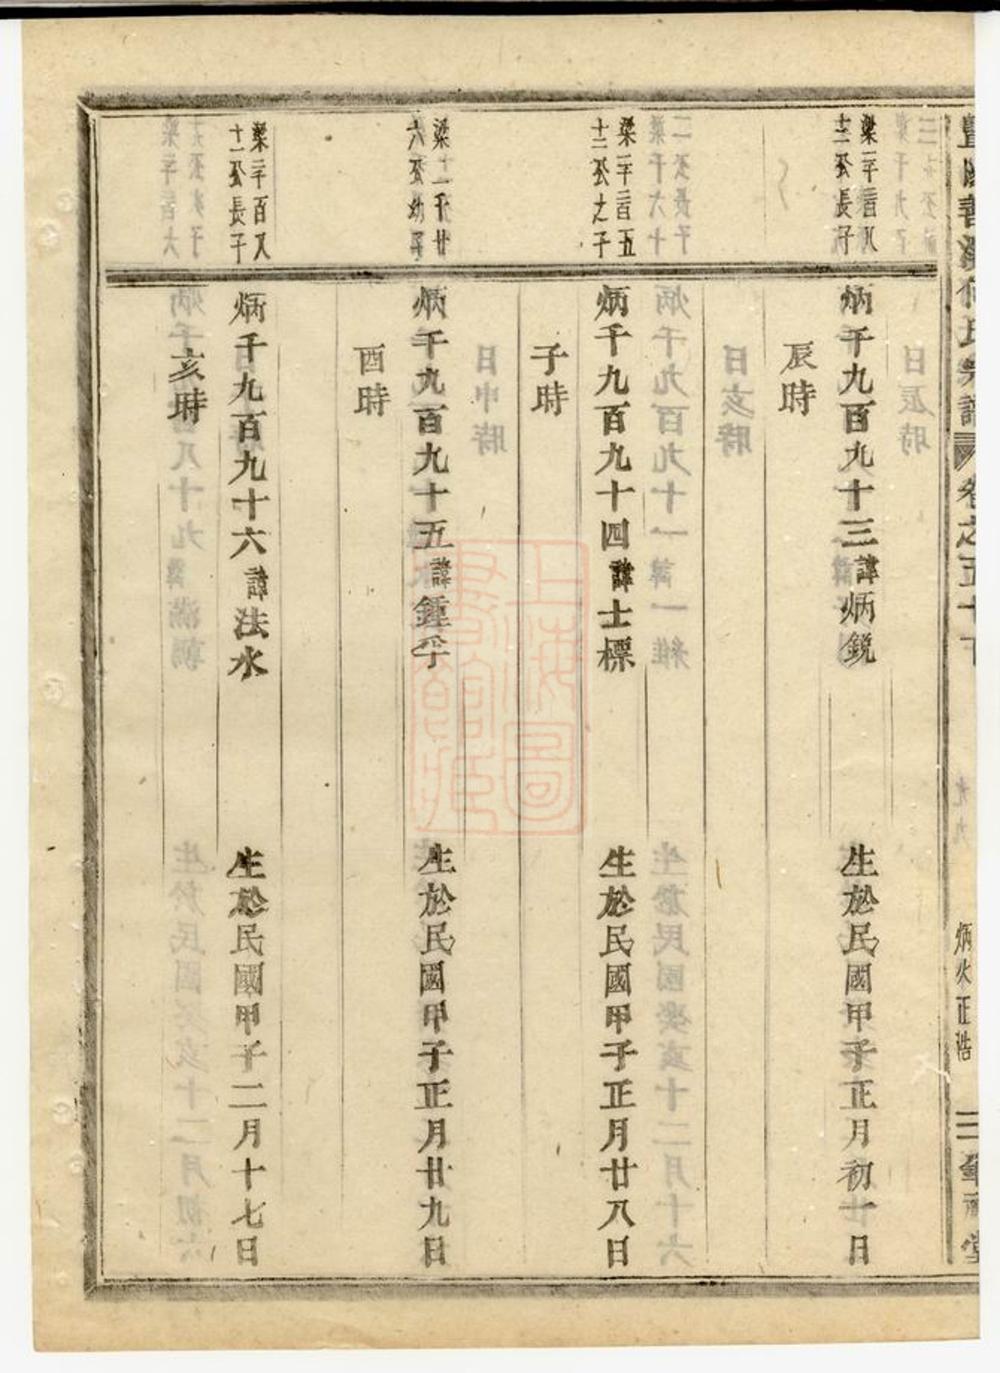 卷之五十下
炳火正浩
梁二千二百八
十二公長子
炳千九百九十三諱炳鏡
生於民國甲子正月初一日
辰時
梁二千二百五
十二公之子
炳千九百九十四諱士標
生於民國甲子正月廿八日
子時
梁二千廿
六公幼子
炳千九百九十五諱鍾孚
生於民國甲子正月廿九日
酉時
梁二千百八
十一公長子
炳千九百九十六諱法水
生於民國甲子二月十七日
亥時
上海圖
書館藏